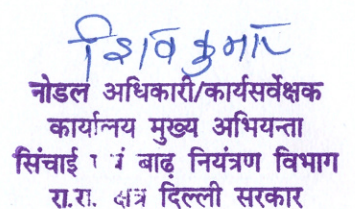 शिव कुमार
नोडल अधिकारी/कार्यसर्वेक्षक
कार्यालय मुख्य अभियन्ता
सिंचाई बाढ़ नियंत्रण विभाग
रा.रा. दिल्ली सरकार